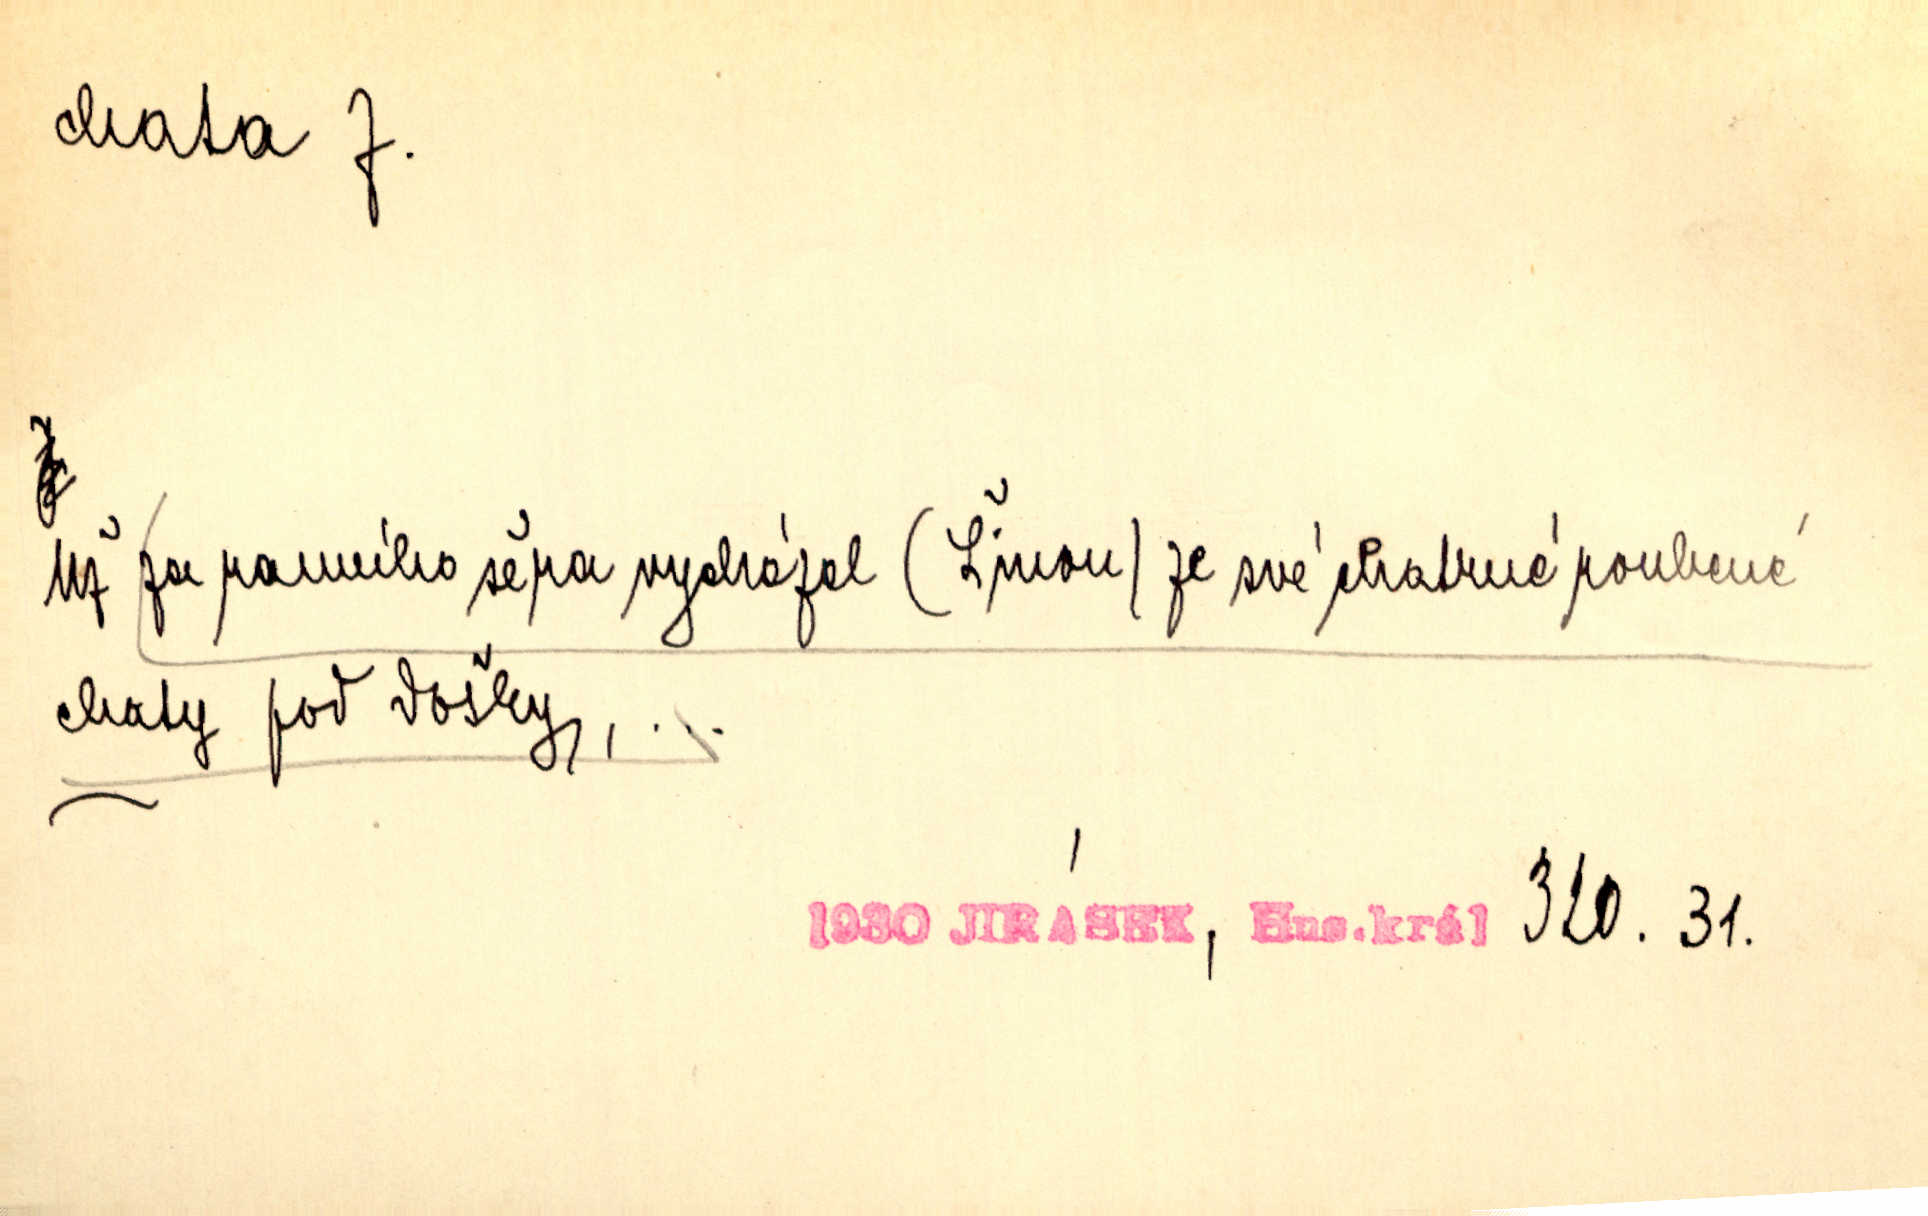 chata f.
Už za ranního šera vycházel (Šimon) ze své chatrné roubené
chaty pod došky, ...
1930 JIRÁSEK, Hus.král 320. 31.